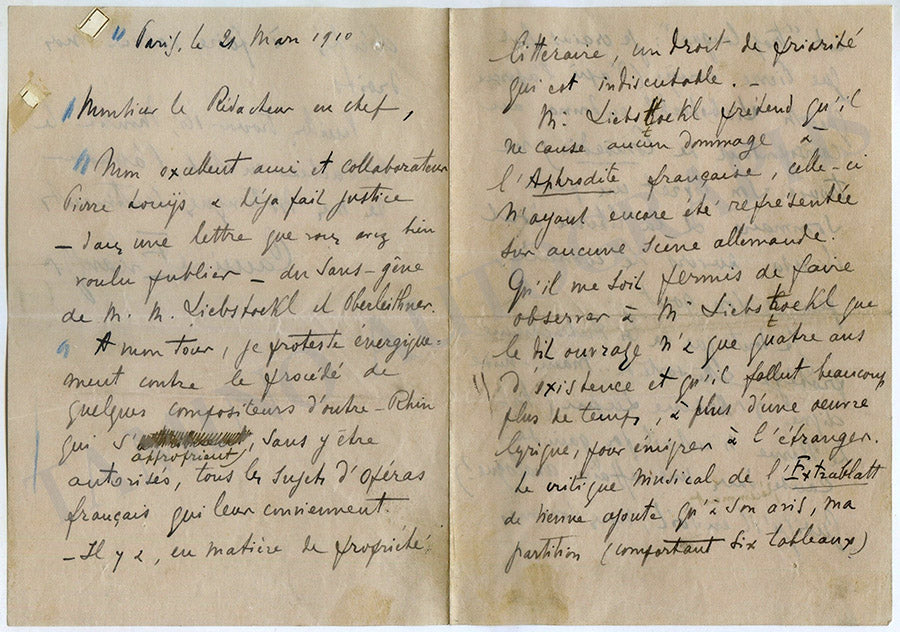 " Paris, le 21 Mars 1910
" Monsieur le Rédacteur en chef,
" Mon excellent ami et collaborateur
Pierre Louÿs a déjà fait justice
— dans une lettre que vous avez bien
voulu publier — du sans-gêne
de M. M. Liebstoekl et Oberleithner.
" A mon tour, je proteste énergique-
ment contre le procédé de
quelques compositeurs d'outre-Rhin
qui s' approprient, sans y être
autorisés, tous les sujets d'opéras
français qui leur conviennent.
— Il y a, en matière de propriété
littéraire, un droit de priorité
qui est indiscutable. —
M. Liebstoekl prétend qu'il
ne cause aucun dommage à
l'Aphrodite française, celle-ci
n'ayant encore été représentée
sur aucune scène allemande.
Qu'il me soit permis de faire
observer à M Liebstoekl que
le dit ouvrage n'a que quatre ans
d'existence et qu'il fallut beaucoup
plus de temps, à plus d'une oeuvre
lyrique, pour émigrer à l'étranger.
Le critique musical de l'Extrablatt
de Vienne ajoute qu'à son avis, ma
partition (comportant six tableaux)